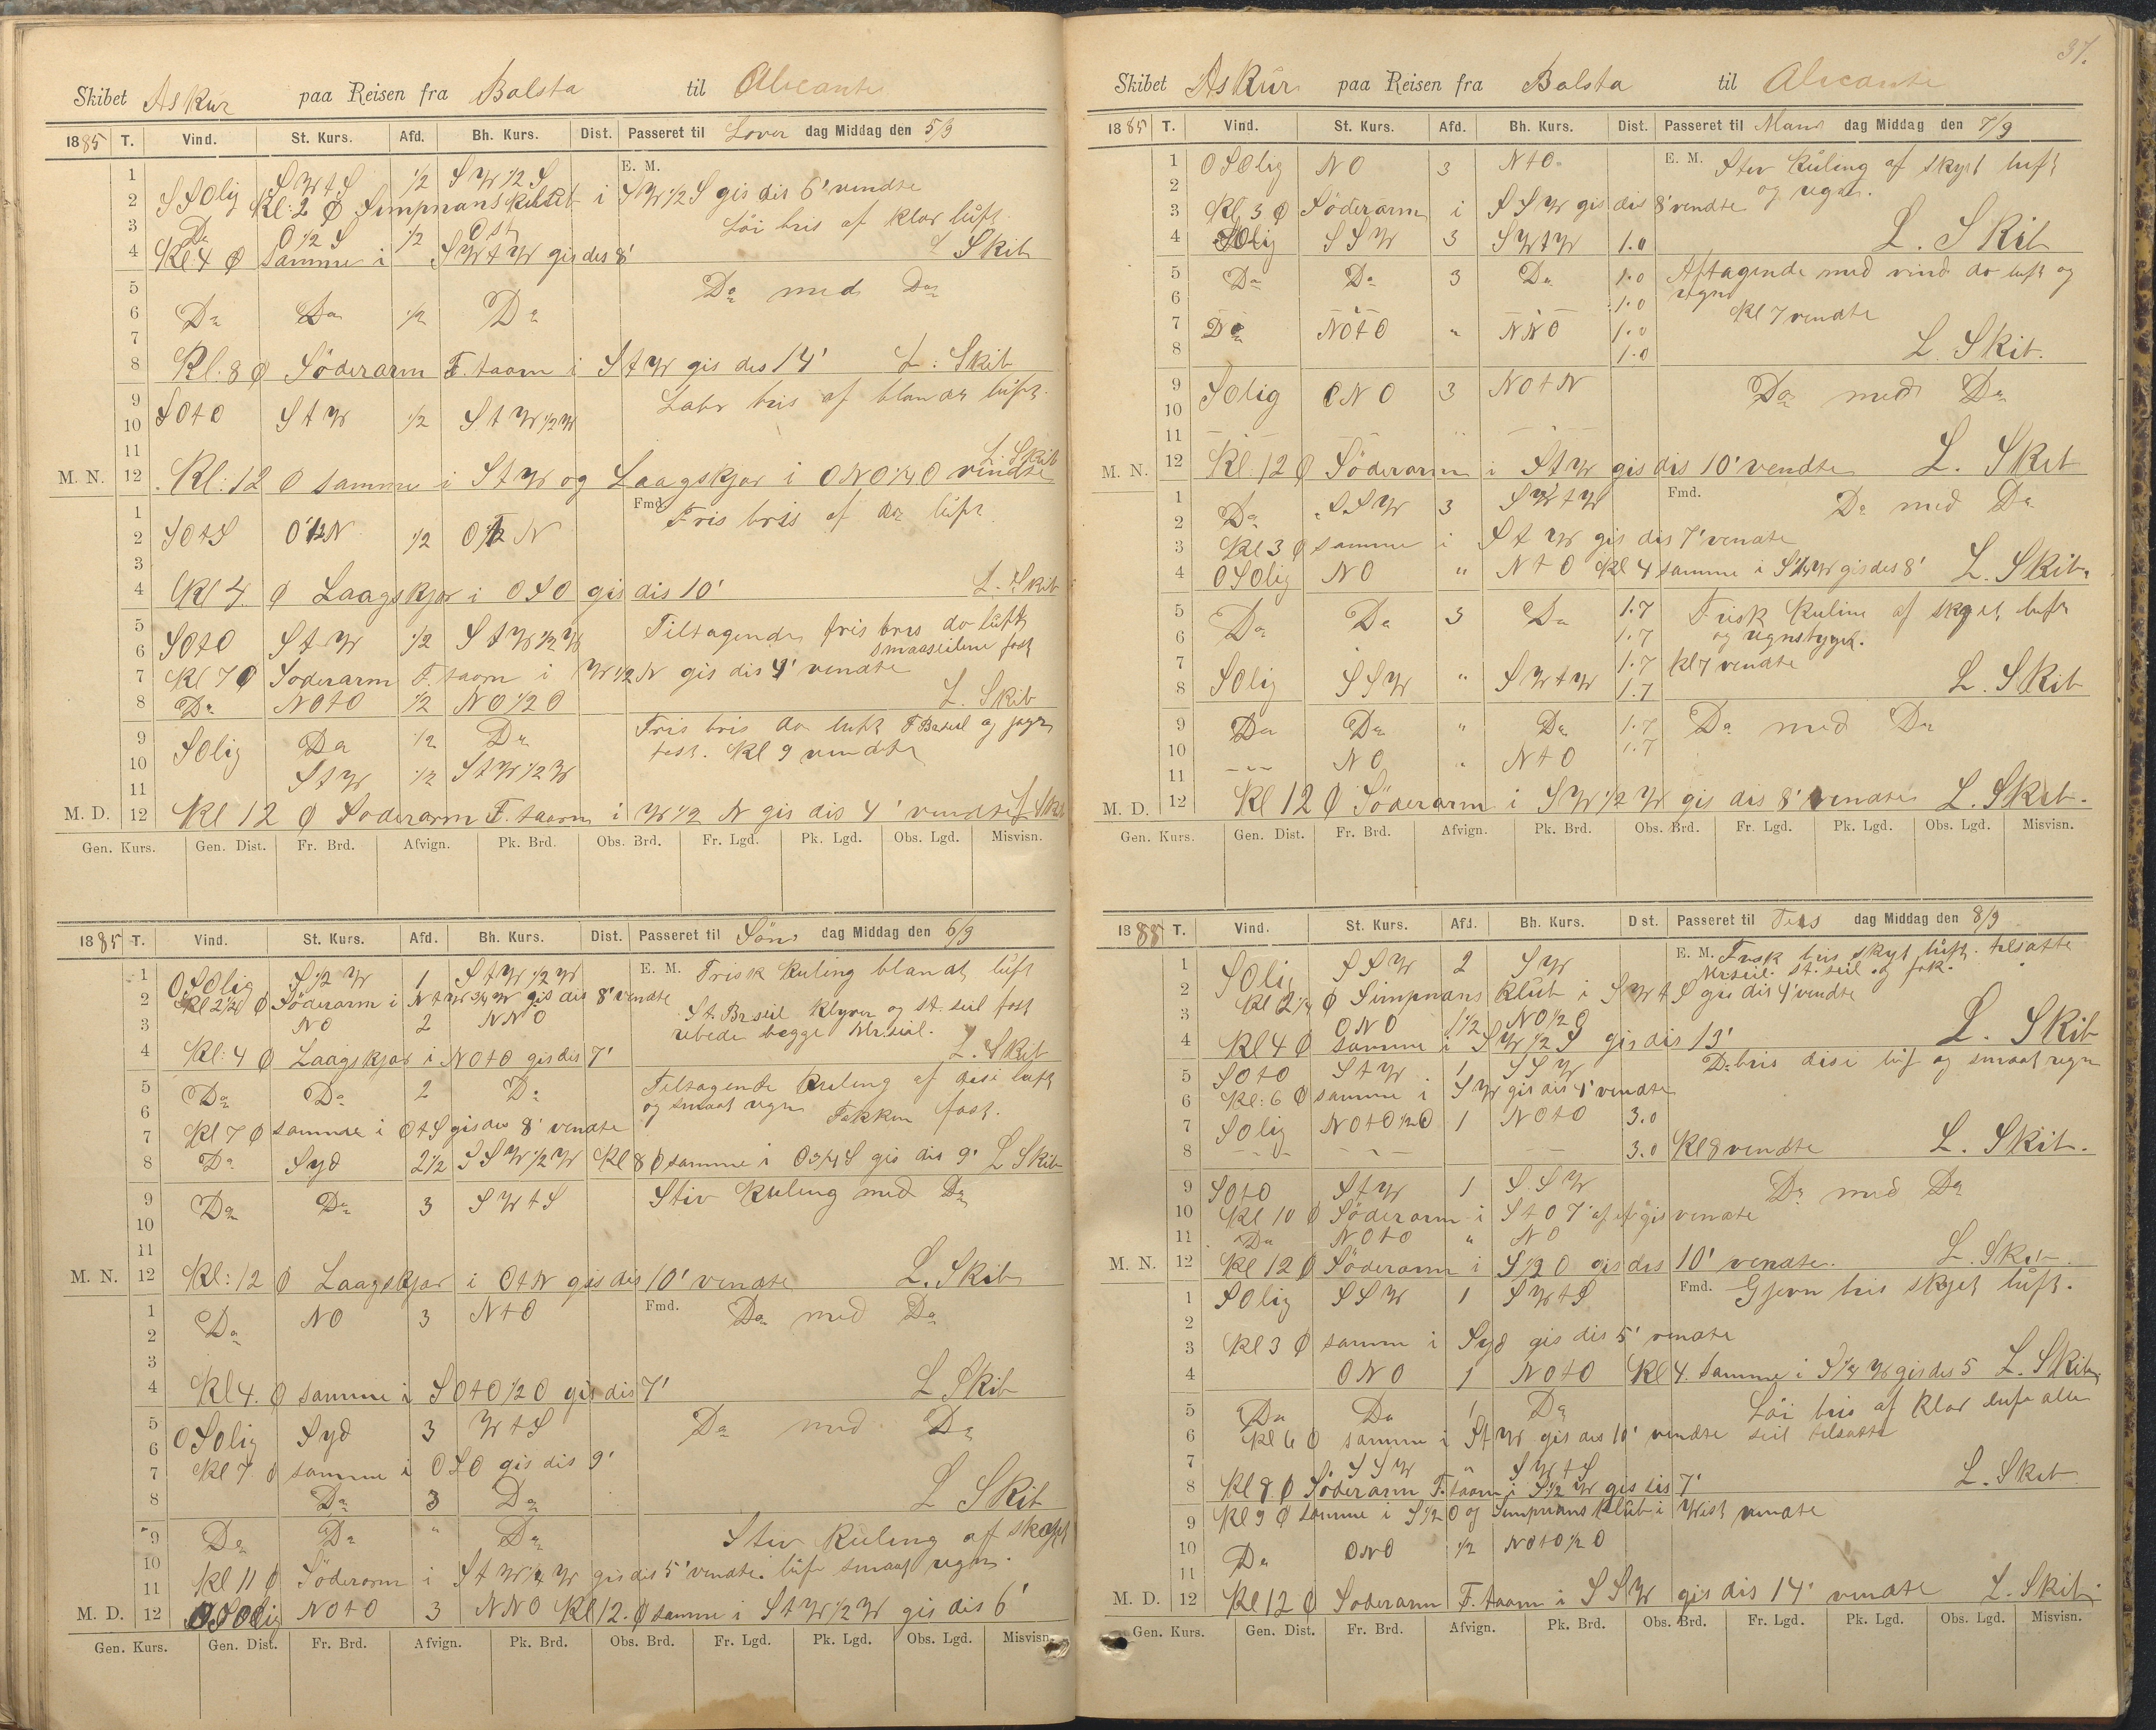 Skibet Askur paa Reisen fra Balsta til Alicante
1885 T. Vind. St. Kurs. Afd. Bh. Kurs. Dist. Passeret til Lover dag Middag den 5/9
1 SWtS 1/2 SW1/2S E. M.
2 SSOlig Kl: 2 Ø Simpnansklubb i SW1/2S gis dis 6' vendte
3 Do O1/2S 1/2 Löi bris af klar luft
4 Kl 4 Ø Samme i SWtW gis des 8' L Skib
5 Do med Do
6 Do Do 1/2 Do
7
8 Kl: 8 Ø Söderarm F. taarn i StW gis des 14' L: Skib
9 Labr bris af blandt luft.
10 SOtO StW 1/2 StW1/2W
11 L. Skib
M. N. 12 Kl: 12 Ø samme i StW og Laagskjær i ONO1/4O vendte
1 Fmd. Fris bris af do luft
2 SOtS O1/2N 1/2 O1/2N
3
4 Kl 4. Ø Laagskjær i OSO gis dis 10' L. Skib
5 Tiltagende fris bris do luft
6 SOtO StW 1/2 StW1/2W smaaseilene fast
7 Kl 7 Ø Söderarm F. taarn i W1/2N gis dis 4' vendte
8 Do NOtO 1/2 NO1/2O L. Skib
9 SOlig Do 1/2 Do Fris bris do luft F Brseil og jager
10 StW 1/2 StW1/2W fast. Kl 9 vendte
11
M. D. 12 Kl 12 Ø Söderarm F. taarn i W1/2 N gis dis 4' vendte L Skib
Gen. Kurs. Gen. Dist. Fr. Brd. Afvign. Pk. Brd. Obs. Brd. Fr. Lgd. Pk. Lgd. Obs. Lgd. Misvisn.
1885 T. Vind. St. Kurs. Afd. Bh. Kurs. Dist. Passeret til Søn dag Middag den 6/9
1 OSOlig S1/2W 1 StW1/2W E. M. Frisk Kuling blandt luft
2 Kl 2 1/2 Ø Söderarm i NtW3/4W gis dis 8' vendte
3 NO 2 NNO St. Brseil Klyver og st. seil fast
rebede begge Mrseil.
4 Kl: 4 Ø Laagskjær i NOtO gis des 7' L. Skib
5 Do Do 2 Do Tiltagende Kuling af disi luft
6 og smaat regn Fokken fast.
7 Kl 7 Ø samme i OtS gis des 8' vendte
8 Do Syd 2 1/2 SSW1/2W Kl 8 Ø samme i O3/4S gis dis 9' L Skib
9 Do Do 3 SWtS Stiv Kuling med Do
10
11
M. N. 12 Kl: 12 Ø Laagskjær i OtN gis dis 10' vendte L. Skib
1 Do NO 3 NtO Fmd. Do med Do
2
3
4 Kl 4. Ø samme i SOtO1/2O gis dis 7' L Skib
5 OSOlig Syd 3 WtS Do med Do
6
7 Kl 7. Ø samme i OSO gis dis 9'
8 Do 3 Do L Skib
9 Do Do " Do Stiv Kuling af skyet
10
11 Kl 11 Ø Söderarm i StW1/4W gis dis 5' vendte. luft smaat regn.
M. D. 12 OSOlig NOtO 3 NNO Kl 12. Ø samme i StW1/2W gis dis 6'
Gen. Kurs. Gen. Dist. Fr. Brd. Afvign. Pk. Brd. Obs. Brd. Fr. Lgd. Pk. Lgd. Obs. Lgd. Misvisn.
37.
Skibet Askur paa Reisen fra Balsta til Alicante
1885 T. Vind. St. Kurs. Afd. Bh. Kurs. Dist. Passeret til Man dag Middag den 7/9
1 OSOlig NO 3 NtO E. M. Stiv Kuling af skyet luft
2 og regn.
3 Kl 3 Ø Söderarm i SSW gis dis 8' vendte
4 SOlig SSW 3 SWtW 1.0 L. Skib
5 Do Do 3 Do 1.0 Aftagende med vind do luft og
6 1.0 regn
7 Do NOtO " NNO 1.0 Kl 7 vendte
8 1.0 L. Skib.
9 SOlig ONO 3 NOtN Do med Do
10
11
M. N. 12 Kl. 12 Ø Söderarm i StW gis dis 10' vendte L. Skib
1 Do SSW 3 SWtW Fmd. Do med Do
2
3 Kl 3 Ø samme i StW gis dis 7' vendte
4 OSOlig NO " NtO Kl 4 samme i S1/4W gis des 8' L. Skib.
5 Do Do 3 Do 1.7 Frisk Kuline af skyet luft
6 1.7 og regnstygge.
7 1.7 Kl 7 vendte
8 SOlig SSW " SWtW 1.7 L. Skib
9 Do Do " Do 1.7 Do med Do
10 NO " NtO 1.7
11
M. D. 12 Kl 12 Ø Söderarm i SW1/2W gis dis 8' vendte L. Skib.
Gen. Kurs. Gen. Dist. Fr. Brd. Afvign. Pk. Brd. Obs. Brd. Fr. Lgd. Pk. Lgd. Obs. Lgd. Misvisn.
1885 T. Vind. St. Kurs. Afd. Bh. Kurs. Dist. Passeret til Tirs dag Middag den 8/9
1 SOlig SSW 2 SW E. M. Frisk bris skyet luft. tilsatte
Mrseil. st. seil og fok.
2 Kl 2 1/4 Ø Simpnans Klub i SWtS gis dis 4' vendte
3 ONO 1 1/2 NO1/2O
4 Kl 4 Ø samme i SW1/2S gis dis 13' L. Skib
5 SOtO StW 1 SSW Do bris disi luf og smaat regn
6 Kl: 6 Ø samme i SW gis dis 4' vendte
7 SOlig NOtO1/2O 1 NOtO 3.0
8 3.0 Kl 8 vendte L. Skib.
9 SOtO StW 1 SSW Do med Do
10 Kl 10 Ø Söderarm i StO 7' af gis vendte
11 Do NOtO " NO
M. N. 12 Kl 12 Ø Söderarm i S1/2O gis des 10' vendte. L. Skib
1 SOlig SSW 1 SWtS Fmd. Gjevn bris skyet luft.
2
3 Kl 3 Ø samme i Syd gis dis 5' vendte
4 ONO 1 NOtO Kl 4. samme i S1/4W gis des 5 L. Skib
5 Do Do 1 Do Löi bris af Klar luft alle
6 Kl 6 Ø samme i StW gis des 10' vendte seil tilsatte
7 SSW " SWtS
8 Kl 8 Ø Söderarm F. taarn i S1/2W gis dis 7' L. Skib
9 Kl 9 Ø samme i S1/2O og Simpnans klub i West vendte
10 Do ONO 1/2 NOtO1/2O
11
M. D. 12 Kl 12 Ø Söderarm F. taarn i SSW gis dis 14' vendte L. Skib.
Gen. Kurs. Gen. Dist. Fr. Brd. Afvign. Pk. Brd. Obs. Brd. Fr. Lgd. Pk. Lgd. Obs. Lgd. Misvisn.